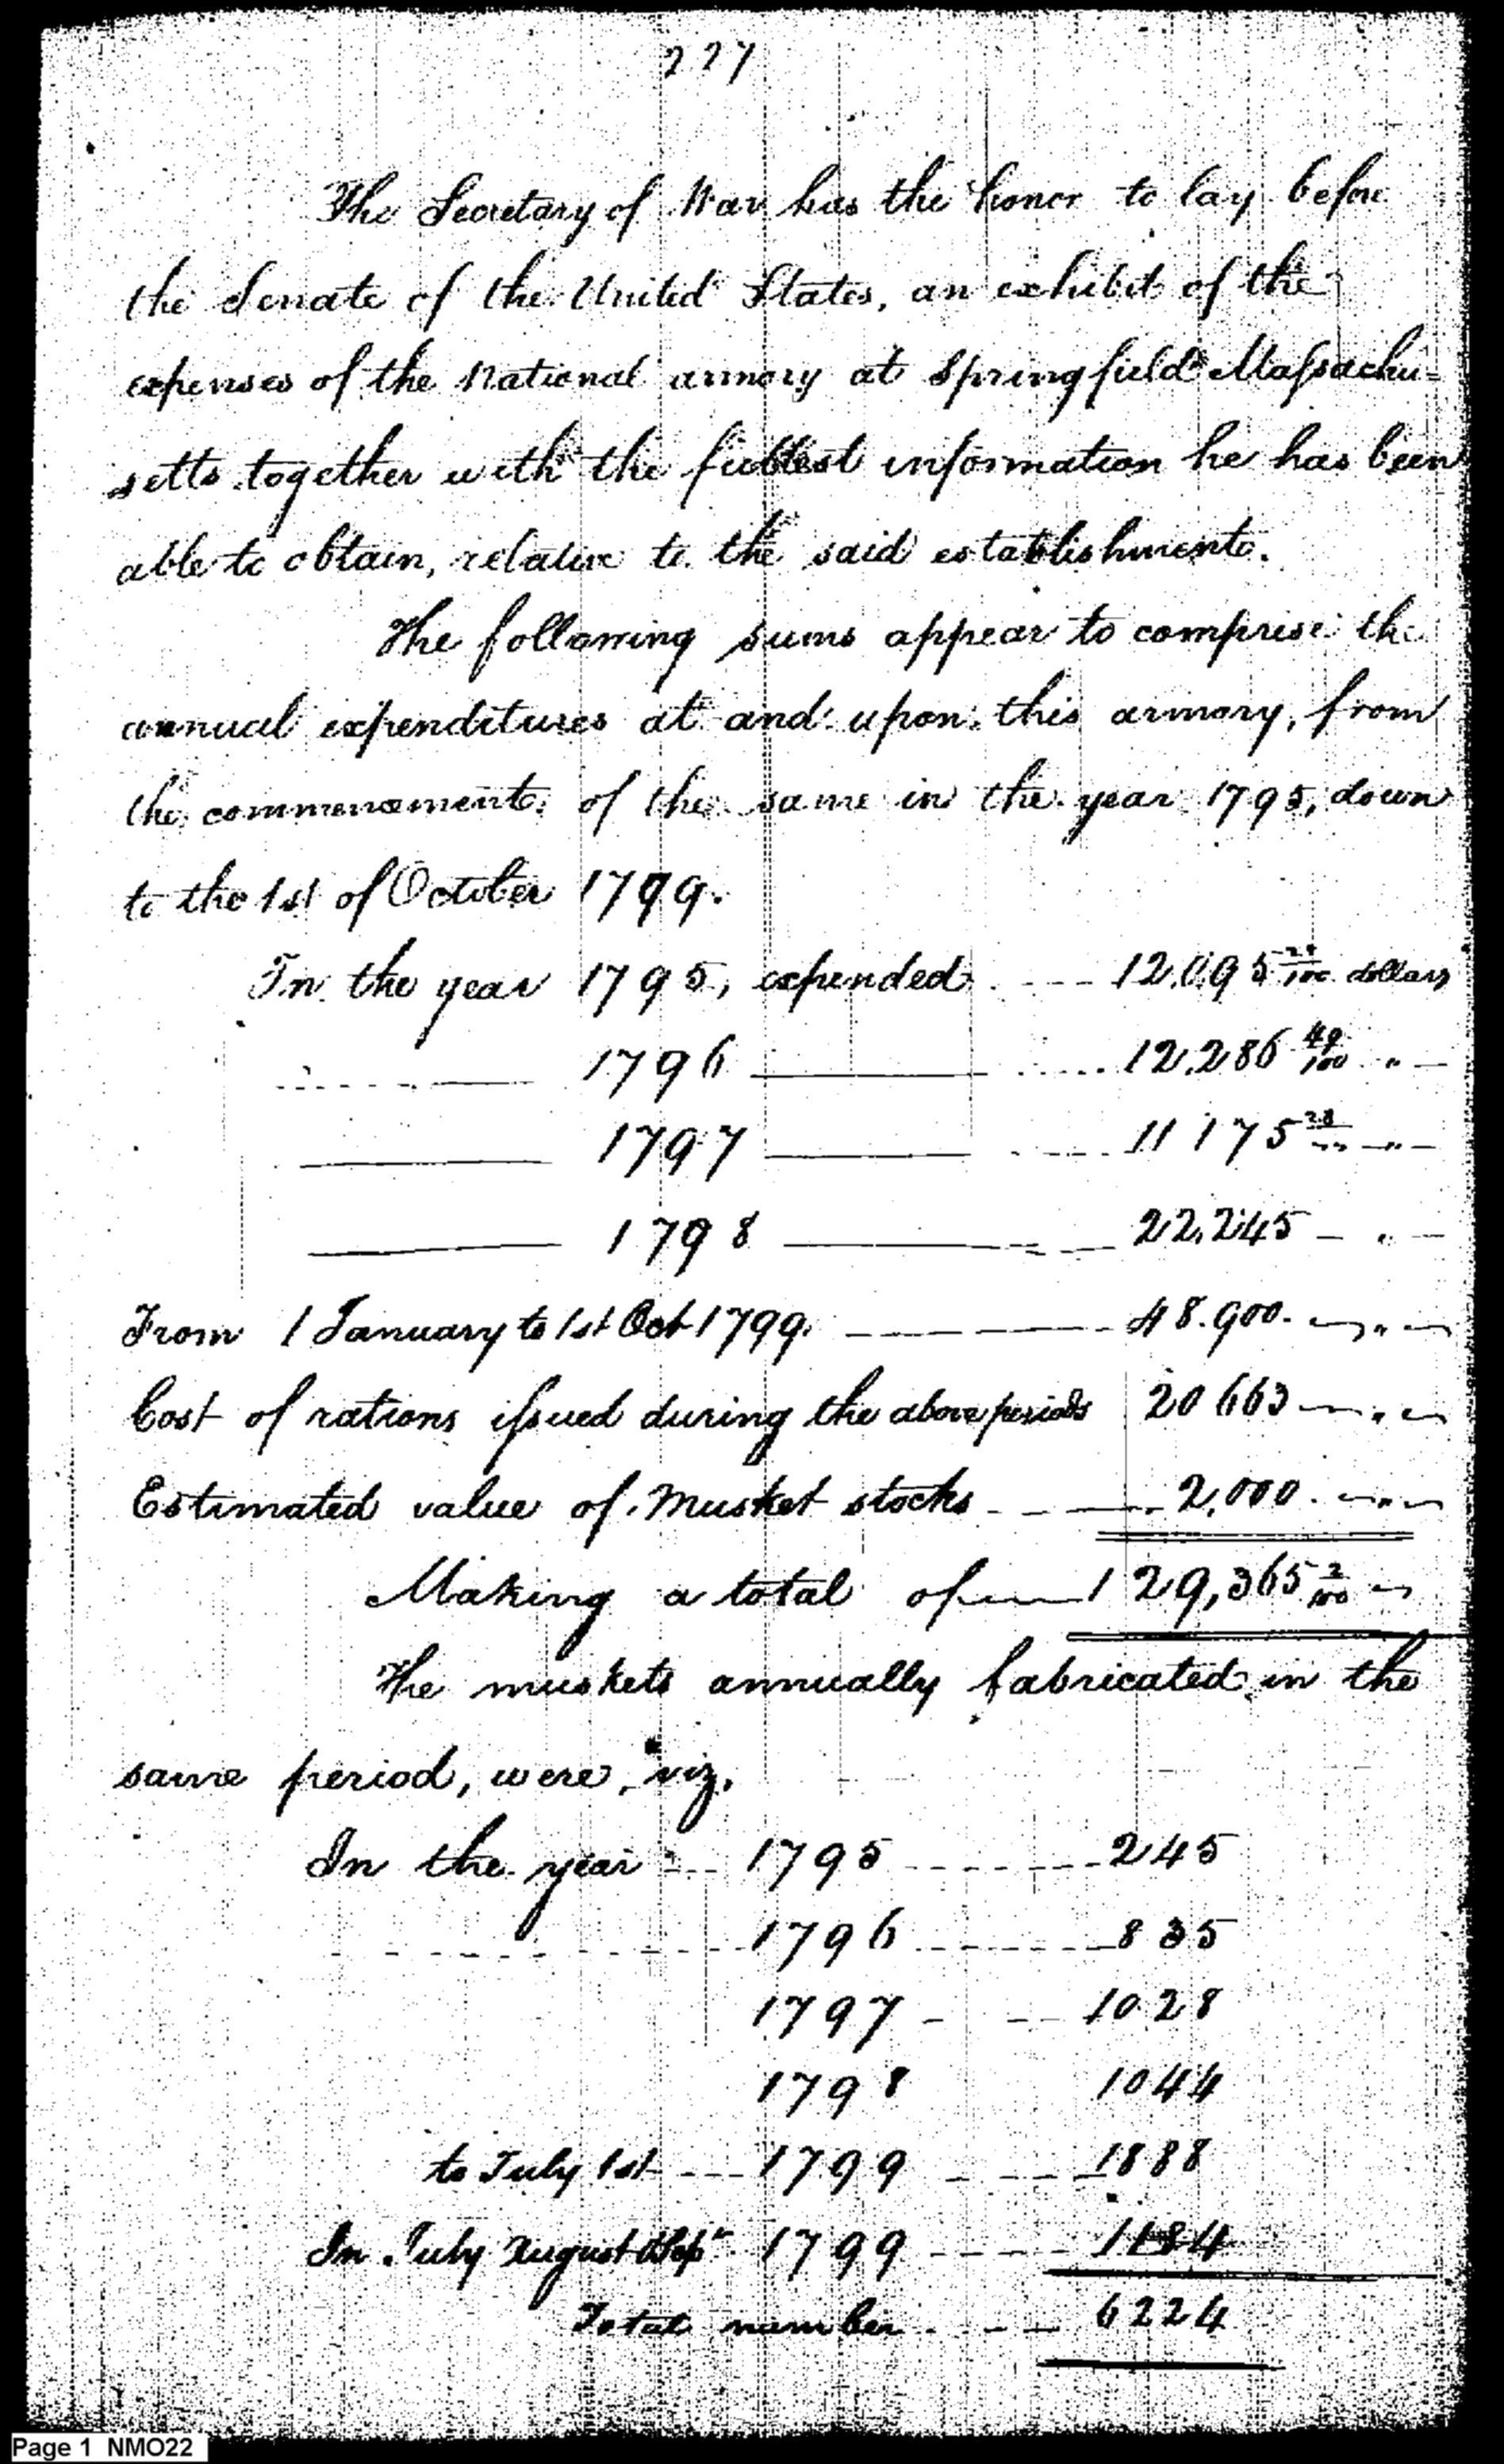 227
The Secretary of War has the honor to lay before
the Senate of the United States, an exhibit of the
expenses of the National armory at Springfield Massachu-
setts together with the fullest information he has been
able to obtain, relative to the said establishment.
The following sums appear to comprise the
annual expenditures at and upon this armory, from
the commencement of the same in the year 1795, down
to the 1st of October 1799.
In the year 1795, expended ---- 12,095 25/100 dollars
---- 1796 ---- 12,286 49/100 " —
---- 1797 ---- 11 175 28/100 " —
---- 1798 ---- 22,245 — " —
From 1 January to 1st Oct 1799. ---- 48.900. — " —
Cost of rations issued during the above periods 20 663 — " —
Estimated value of Musket stocks ---- 2,000. — " —
Making a total of — 129,365 2/100 —
The muskets annually fabricated in the
same period, were, viz.
In the year --- 1795 ---- 245
---- 1796 ---- 835
1797 - -- 1028
1798 1044
to July 1st --- 1799 ---- 1888
In July August & Sepr 1799 ---- 1184
Total number ---- 6224
Page 1 NMO22